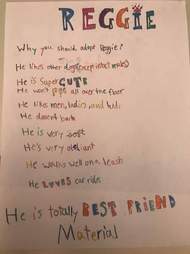 REGGIE
Why you should adopt Reggie?
He likes other dogs (except intact males)
He is Super CUTE
He won't pee all over the floor
He likes men, ladies and kids
He doesn't bark
He is very soft
He's very obedient
He walks well on a leash
He LOVES car rides
He is totally BEST FRIEND
Material